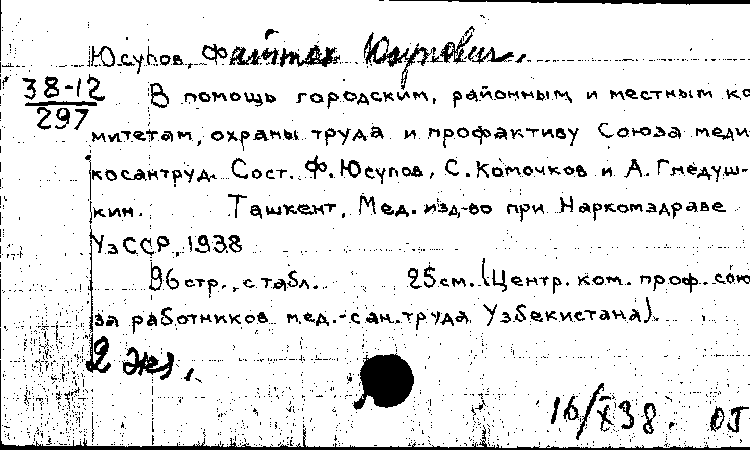 Юсупов, Фаттах Юсупович.
38-12
297
В помощь городским, районным и местным ко
митетам, охраны труда и профактиву Союза меди
косантруд. Сост. Ф. Юсупов, С. Комочков и А. Гнедуш-
кин. Ташкент, Мед. изд-во при Наркомздраве
УзССР, 1938
96 стр., с табл. 25 см. (Центр. ком. проф. сою
за работников мед.-сан. труда Узбекистана).
2 экз.
16/X 38.